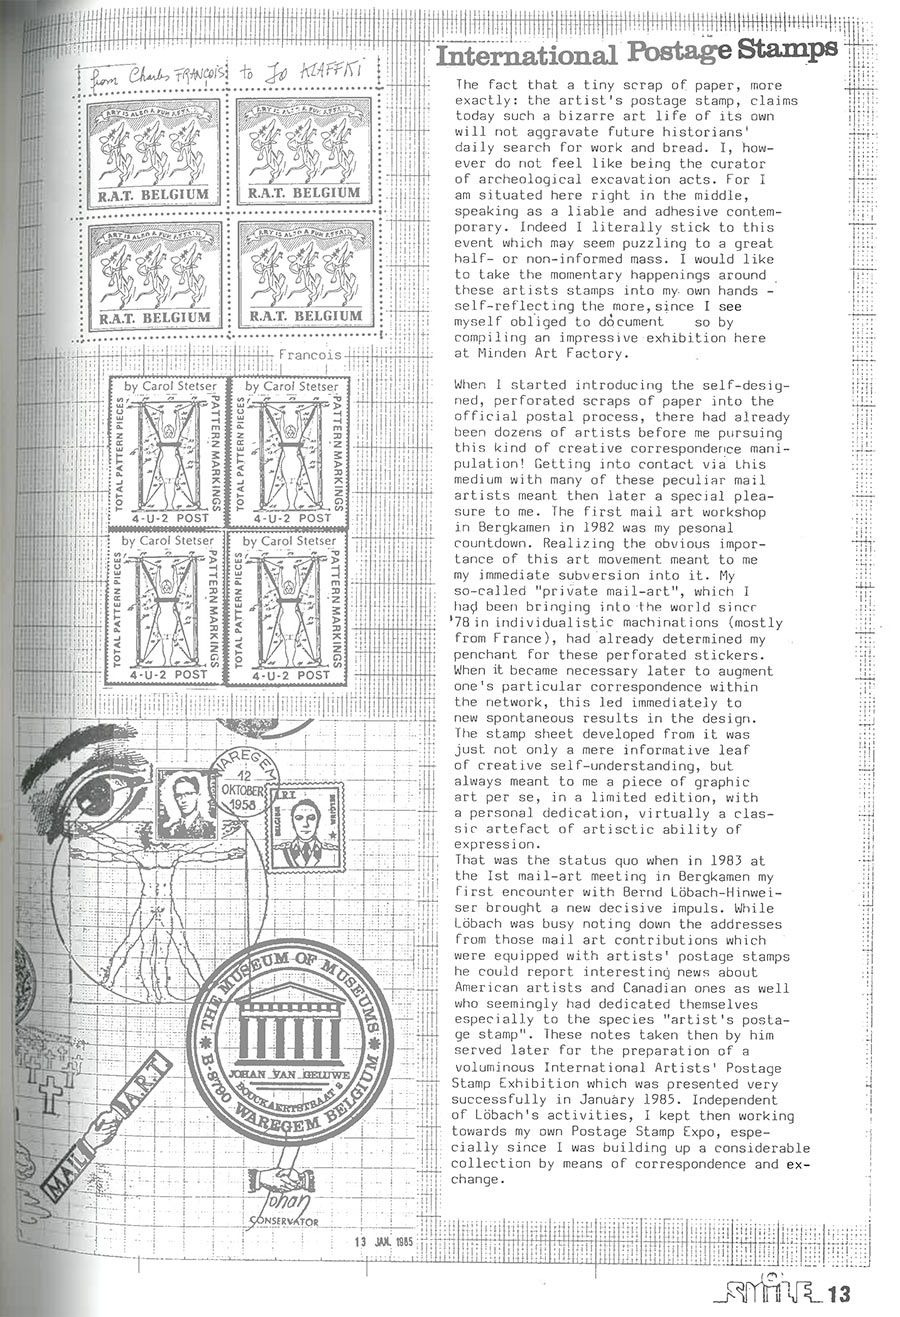 International Postage Stamps
from Charles FRANÇOIS to Jo KLAFFKI
ART IS ALSO A FUN AFFAIR
R.A.T. BELGIUM
ART IS ALSO A FUN AFFAIR
R.A.T. BELGIUM
ART IS ALSO A FUN AFFAIR
R.A.T. BELGIUM
ART IS ALSO A FUN AFFAIR
R.A.T. BELGIUM
Francois
by Carol Stetser
TOTAL PATTERN PIECES
PATTERN MARKINGS
4-U-2 POST
by Carol Stetser
TOTAL PATTERN PIECES
PATTERN MARKINGS
4-U-2 POST
by Carol Stetser
TOTAL PATTERN PIECES
PATTERN MARKINGS
4-U-2 POST
by Carol Stetser
TOTAL PATTERN PIECES
PATTERN MARKINGS
4-U-2 POST
WAREGEM
12
OKTOBER
1958
ART
BELGIUM
BELGIUM
THE MUSEUM OF MUSEUMS
JOHAN VAN GELUWE
BOUCKAERTSTRAAT 8
B-8790 WAREGEM BELGIUM
MAIL ART
Johan
CONSERVATOR
13 JAN. 1985
The fact that a tiny scrap of paper, more
exactly: the artist's postage stamp, claims
today such a bizarre art life of its own
will not aggravate future historians'
daily search for work and bread. I, how-
ever do not feel like being the curator
of archeological excavation acts. For I
am situated here right in the middle,
speaking as a liable and adhesive contem-
porary. Indeed I literally stick to this
event which may seem puzzling to a great
half- or non-informed mass. I would like
to take the momentary happenings around
these artists stamps into my own hands -
self-reflecting the more, since I see
myself obliged to document so by
compiling an impressive exhibition here
at Minden Art Factory.
When I started introducing the self-desig-
ned, perforated scraps of paper into the
official postal process, there had already
been dozens of artists before me pursuing
this kind of creative correspondence mani-
pulation! Getting into contact via this
medium with many of these peculiar mail
artists meant then later a special plea-
sure to me. The first mail art workshop
in Bergkamen in 1982 was my pesonal
countdown. Realizing the obvious impor-
tance of this art movement meant to me
my immediate subversion into it. My
so-called "private mail-art", which I
had been bringing into the world since
'78 in individualistic machinations (mostly
from France), had already determined my
penchant for these perforated stickers.
When it became necessary later to augment
one's particular correspondence within
the network, this led immediately to
new spontaneous results in the design.
The stamp sheet developed from it was
just not only a mere informative leaf
of creative self-understanding, but
always meant to me a piece of graphic
art per se, in a limited edition, with
a personal dedication, virtually a clas-
sic artefact of artisctic ability of
expression.
That was the status quo when in 1983 at
the Ist mail-art meeting in Bergkamen my
first encounter with Bernd Löbach-Hinwei-
ser brought a new decisive impuls. While
Löbach was busy noting down the addresses
from those mail art contributions which
were equipped with artists' postage stamps
he could report interesting news about
American artists and Canadian ones as well
who seemingly had dedicated themselves
especially to the species "artist's posta-
ge stamp". These notes taken then by him
served later for the preparation of a
voluminous International Artists' Postage
Stamp Exhibition which was presented very
successfully in January 1985. Independent
of Löbach's activities, I kept then working
towards my own Postage Stamp Expo, espe-
cially since I was building up a considerable
collection by means of correspondence and ex-
change.
SMILE 13